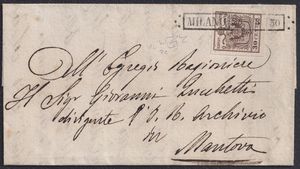 MILANO 30
All' Egregio Ragioniere
Il Sigr Giovanni Lucchetti
dirigente l' I. R. Archivio
in
Mantova